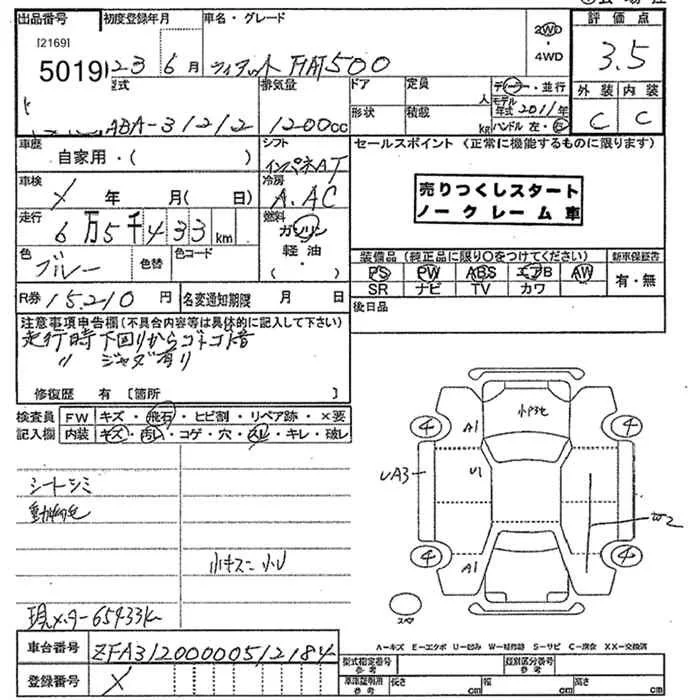 出品番号 初度登録年月 車名・グレード 2WD ・ 4WD 評価点
[2169]
5019 23年 6月 フィアット FIAT500 3.5
型式 ABA-31212 排気量 1200cc ドア 形状 定員 人 積載 kg ディーラー・並行 モデル年式 2011年 ハンドル 左・右 外装 内装
C C
車歴 自家用・( ) シフト インパネAT セールスポイント (正常に機能するものに限ります)
車検 × 年 月( 日) 冷房 A.AC
売りつくしスタート
ノークレーム車
走行 6万5千433km 燃料 ガソリン 軽油 ( ・ )
色 ブルー 色替 色コード
装備品 (純正品に限り○をつけてください) 新車保証書
PS PW ABS エアB AW 有・無
SR ナビ TV カワ
R券 15.210 円 名変通知期限 月 日 後日品
注意事項申告欄 (不具合内容等は具体的に記入して下さい)
走行時下回りからゴトゴト音
〃 ジャダ有り
修復歴 有 [箇所 ]
検査員 FW キズ・飛石・ヒビ割・リペア跡・×要
記入欄 内装 キズ・汚れ・コゲ・穴・スレ・キレ・破レ
シートシミ
動物毛
小キズ 小U
現メーター65433k
小P3 A1 U1 UA3 A1 W2
4 4 4 4
スペ
A-キズ E-エクボ U-凹み W-補修跡 S-サビ C-腐食 XX-交換済
車台番号 ZFA31200000512184
登録番号 ×
型式指定番号 参考 類別区分番号 参考
車庫証明用 参考 長さ cm 幅 cm 高さ cm